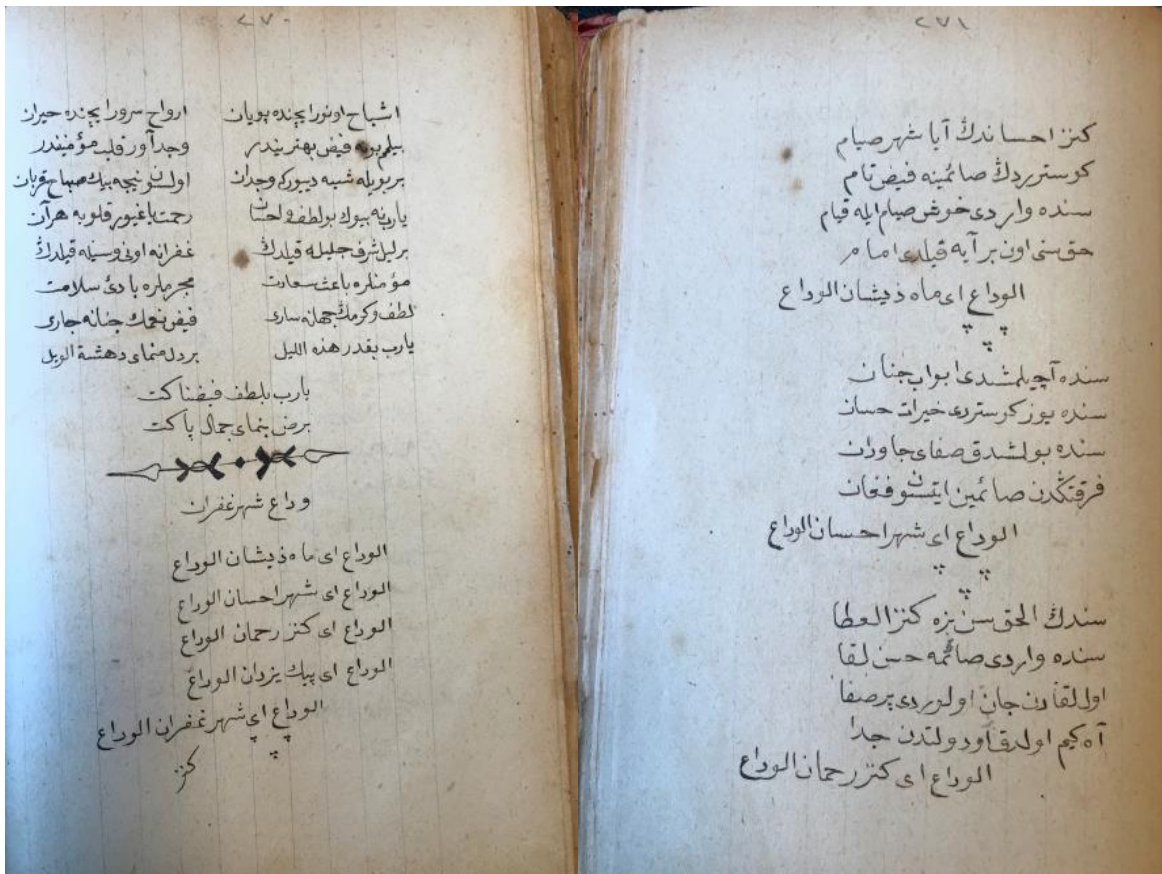 ٢٧٠
اشباح او نور ایچنده پویان ارواح سرور ایچنده حیران
بیلم بو نه فیض بهتریندر وجد آور قلب مؤمنیندر
بر بویله شبه دیورکه وجدان اولسون نیجه بیك صباح قربان
یارب نه بیوك بو لطف و احسان رحمت یاغیور قلوبه هر آن
بر لیل شرف جلیله قیلدڭ غفرانه اونی وسیله قیلدڭ
مؤمنلره باعث سعادت مجرملره بادئ سلامت
لطف و كرمڭ جهانه ساری فیض نعمڭ جنانه جاری
یارب بقدر هذه اللیل بردل منمای دهشة الویل
یارب بلطف فیضناکت
برض بنمای جمال پاکت
وداع شهر غفران
الوداع ای ماه ذیشان الوداع
الوداع ای شهر احسان الوداع
الوداع ای کنز رحمان الوداع
الوداع ای پیك یزدان الوداع
الوداع ای شهر غفران الوداع
کنز
٢٧١
کنز احساندڭ آیا شهر صیام
کوستریردڭ صائمینه فیض تام
سنده واردی خوش صیام ایله قیام
حق سنی اون بر آیه قیلدی امام
الوداع ای ماه ذیشان الوداع
سنده آچیلمشدی ابواب جنان
سنده یوز کوستردی خیرات حسان
سنده بولشدق صفای جاودان
فرقتڭدن صائمین ایتسون فغان
الوداع ای شهر احسان الوداع
سندڭ الحق سن بزه کنز العطا
سنده واردی صائمه حسن لقا
اول لقادن جان اولوردی پرصفا
آه کیم اولدق او دولتدن جدا
الوداع ای کنز رحمان الوداع